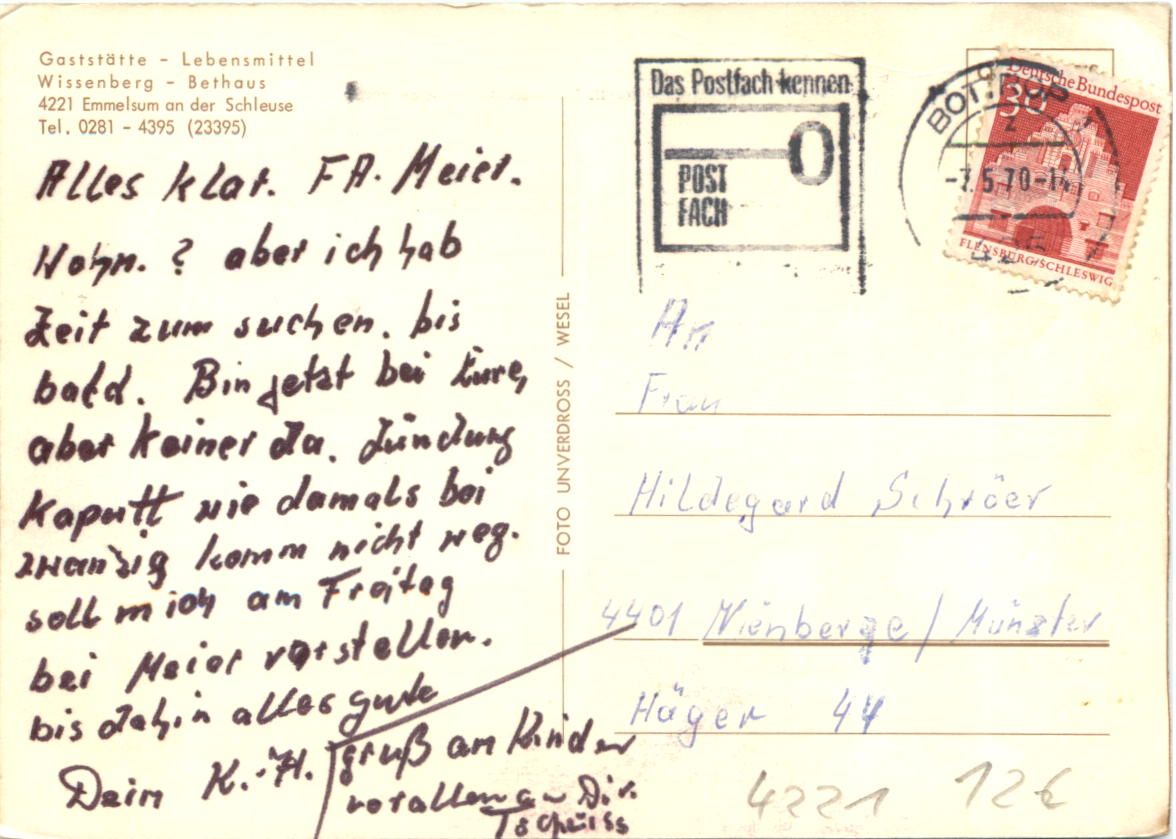 Gaststätte - Lebensmittel
Wissenberg - Bethaus
4221 Emmelsum an der Schleuse
Tel. 0281 - 4395 (23395)
Alles klar. FA. Meier.
Wohn. ? aber ich hab
Zeit zum suchen. bis
bald. Bin jetzt bei
aber keiner da. Zündung
Kaputt wie damals bei
zwanzig komm nicht weg.
soll mich am Freitag
bei Meier vorstellen.
bis dahin alles gute
Dein K.-H.
gruß an Kinder
vor allen an Dir.
Tschüiss
FOTO UNVERDROSS / WESEL
Das Postfach kennen
POST
FACH
BOTTROP
-7.5.70-14
Deutsche Bundespost
30
FLENSBURG/SCHLESWIG
An
Frau
Hildegard Schröer
4401 Nienberge / Münster
Häger 44
4221 12€